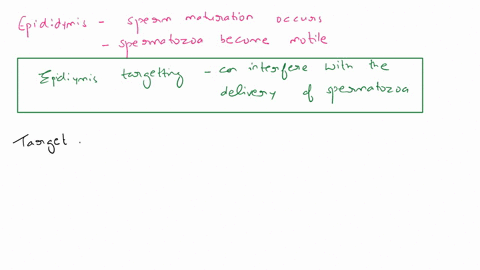 Epididymis - sperm maturation occurs
- spermatozoa become motile
Epidiymis targetting - can interfere with the
delivery of spermatozoa
Target .